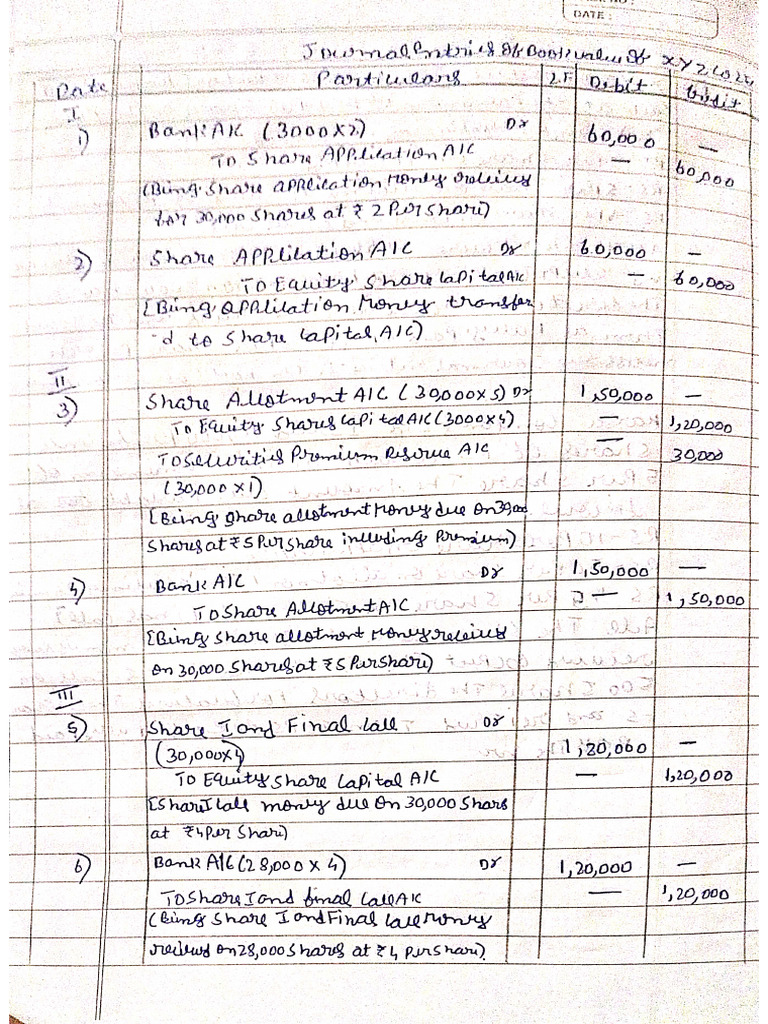 DATE :
Journal Entries Of Books value of XYZ Co Ltd
Date Particulars L.F Debit Credit
I
1) Bank A/c (3000x2) Dr 60,000 —
To Share Application A/C — 60,000
(Being Share application Money received
for 30,000 Shares at ₹ 2 Per Share)
2) Share Application A/C Dr 60,000 —
To Equity Share Capital A/c — 60,000
[Being application Money transfer
-d to Share Capital A/C)
II
3) Share Allotment A/C (30,000x5) Dr 1,50,000 —
To Equity Shares Capital A/C (3000x4) — 1,20,000
To Securities Premium Reserve A/C — 30,000
(30,000 x1)
[Being Share allotment Money due on 30,000
Shares at ₹5 Per share including Premium)
4) Bank A/C Dr 1,50,000 —
To Share Allotment A/C — 1,50,000
[Being Share allotment Money received
on 30,000 Shares at ₹5 Per Share)
III
5) Share I and Final Call Dr
(30,000x4) 1,20,000 —
To Equity Share Capital A/C — 1,20,000
[Share I Call money due on 30,000 Shares
at ₹4 Per Share)
6) Bank A/C (28,000 x 4) Dr 1,20,000 —
To Share I and final Call A/C — 1,20,000
(Being Share I and Final Call Money
received on 28,000 Shares at ₹4 per Share)